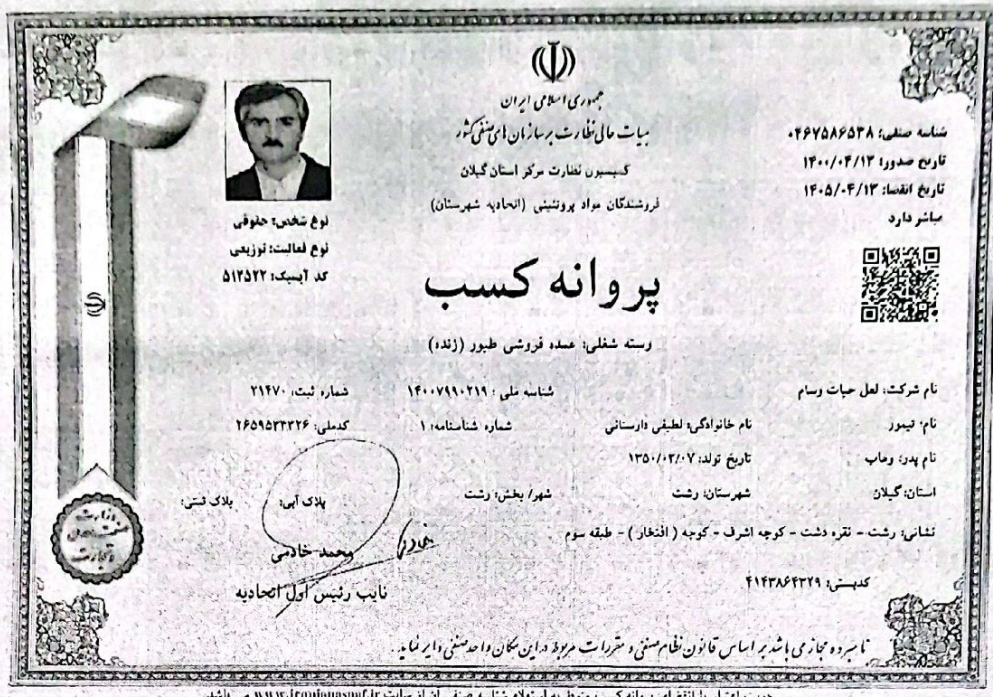 جمهوری اسلامی ایران
هیات عالی نظارت بر سازمان های صنفی کشور
کمیسیون نظارت مرکز استان گیلان
فروشندگان مواد پروتئینی (اتحادیه شهرستان)
شناسه صنفی: ۰۴۶۷۵۸۶۵۳۸
تاریخ صدور: ۱۴۰۰/۰۴/۱۳
تاریخ انقضا: ۱۴۰۵/۰۴/۱۳
مباشر دارد
نوع شخص: حقوقی
نوع فعالیت: توزیعی
کد آیسیک: ۵۱۲۵۲۲
پروانه کسب
رسته شغلی: عمده فروشی طیور (زنده)
نام شرکت: لعل حیات وسام شناسه ملی: ۱۴۰۰۷۹۹۰۲۱۹ شماره ثبت: ۲۱۴۷۰
نام: تیمور نام خانوادگی: لطیفی دارستانی شماره شناسنامه: ۱ کدملی: ۲۶۵۹۵۳۳۳۲۶
نام پدر: وهاب تاریخ تولد: ۱۳۵۰/۰۲/۰۷
استان: گیلان شهرستان: رشت شهر/ بخش: رشت پلاک آبی: پلاک ثبتی:
نشانی: رشت - نقره دشت - کوچه اشرف - کوچه ( افتخار ) - طبقه سوم
کدپستی: ۴۱۴۳۸۶۴۳۲۹
محمد خادمی
نایب رئیس اول اتحادیه
وزارت
صنعت، معدن
و تجارت
نامبرده مجاز می باشد بر اساس قانون نظام صنفی و مقررات مربوط در این مکان واحد صنفی دایر نماید.
www.iranianasnaf.ir